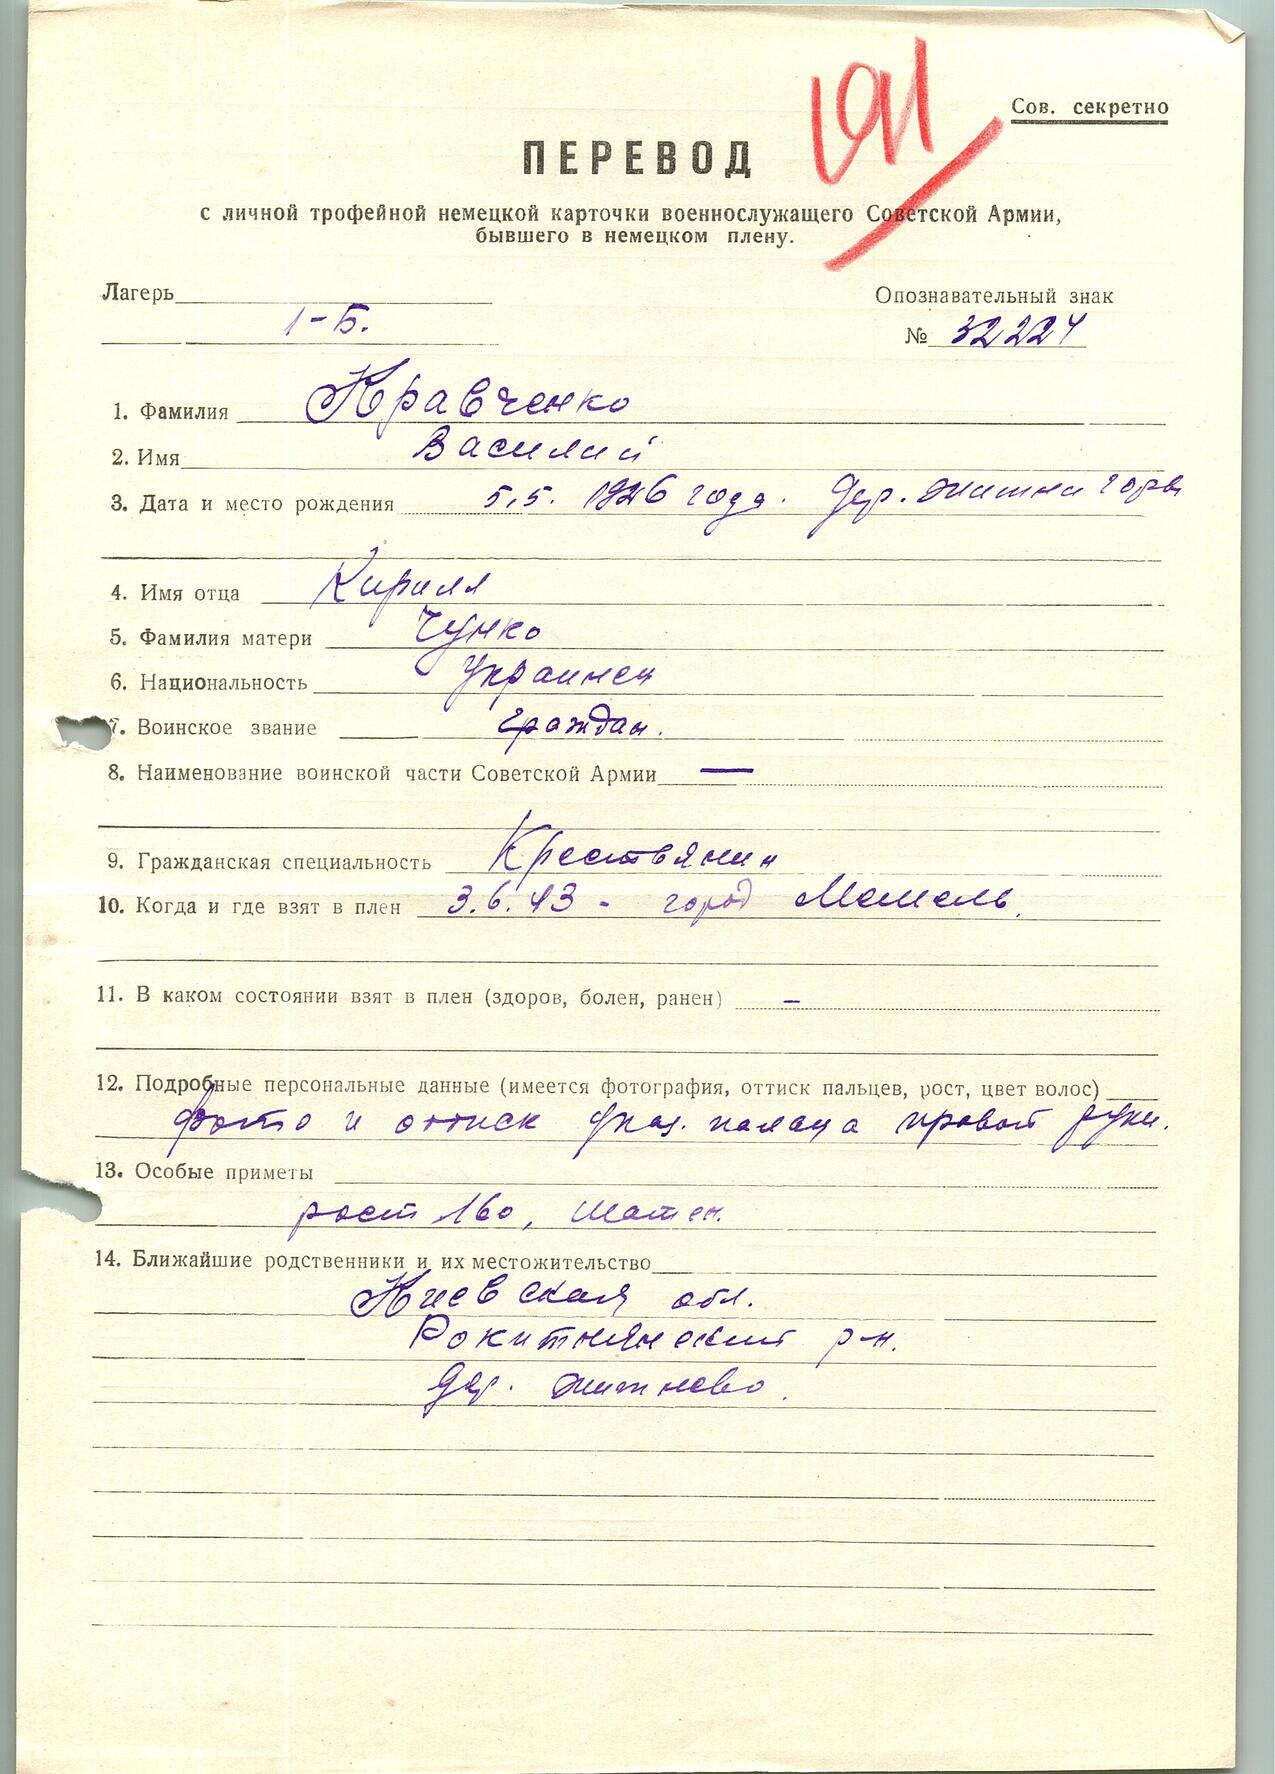 Сов. секретно
ПЕРЕВОД
с личной трофейной немецкой карточки военнослужащего Советской Армии,
бывшего в немецком плену.
Лагерь
1-Б.
Опознавательный знак
№ 32224
1. Фамилия Кравченко
2. Имя Василий
3. Дата и место рождения 5.5. 1926 года. дер. Житни горы
4. Имя отца Кирилл
5. Фамилия матери Чунко
6. Национальность Украинец
7. Воинское звание граждан.
8. Наименование воинской части Советской Армии —
9. Гражданская специальность Крествянин
10. Когда и где взят в плен 3.6.43 - город Мемель.
11. В каком состоянии взят в плен (здоров, болен, ранен) –
12. Подробные персональные данные (имеется фотография, оттиск пальцев, рост, цвет волос)
фото и оттиск указ. пальца правой руки.
13. Особые приметы
рост 160, шатен.
14. Ближайшие родственники и их местожительство
Киевская обл.
Рокитнянский р-н.
дер. Житнево.